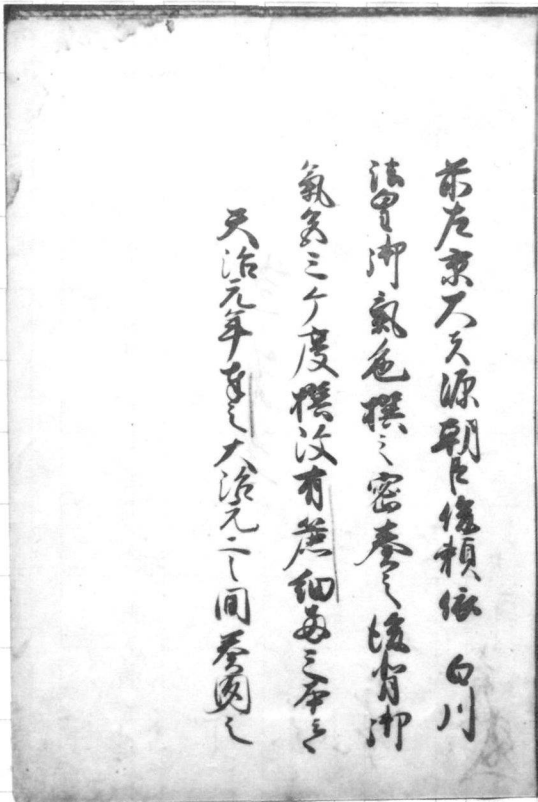 前左京大夫源朝臣俊頼依 白川
法皇御氣色撰之密奏之後背御
氣色三ケ度撰改有 細
天治元年 之大治元二之間奏 之